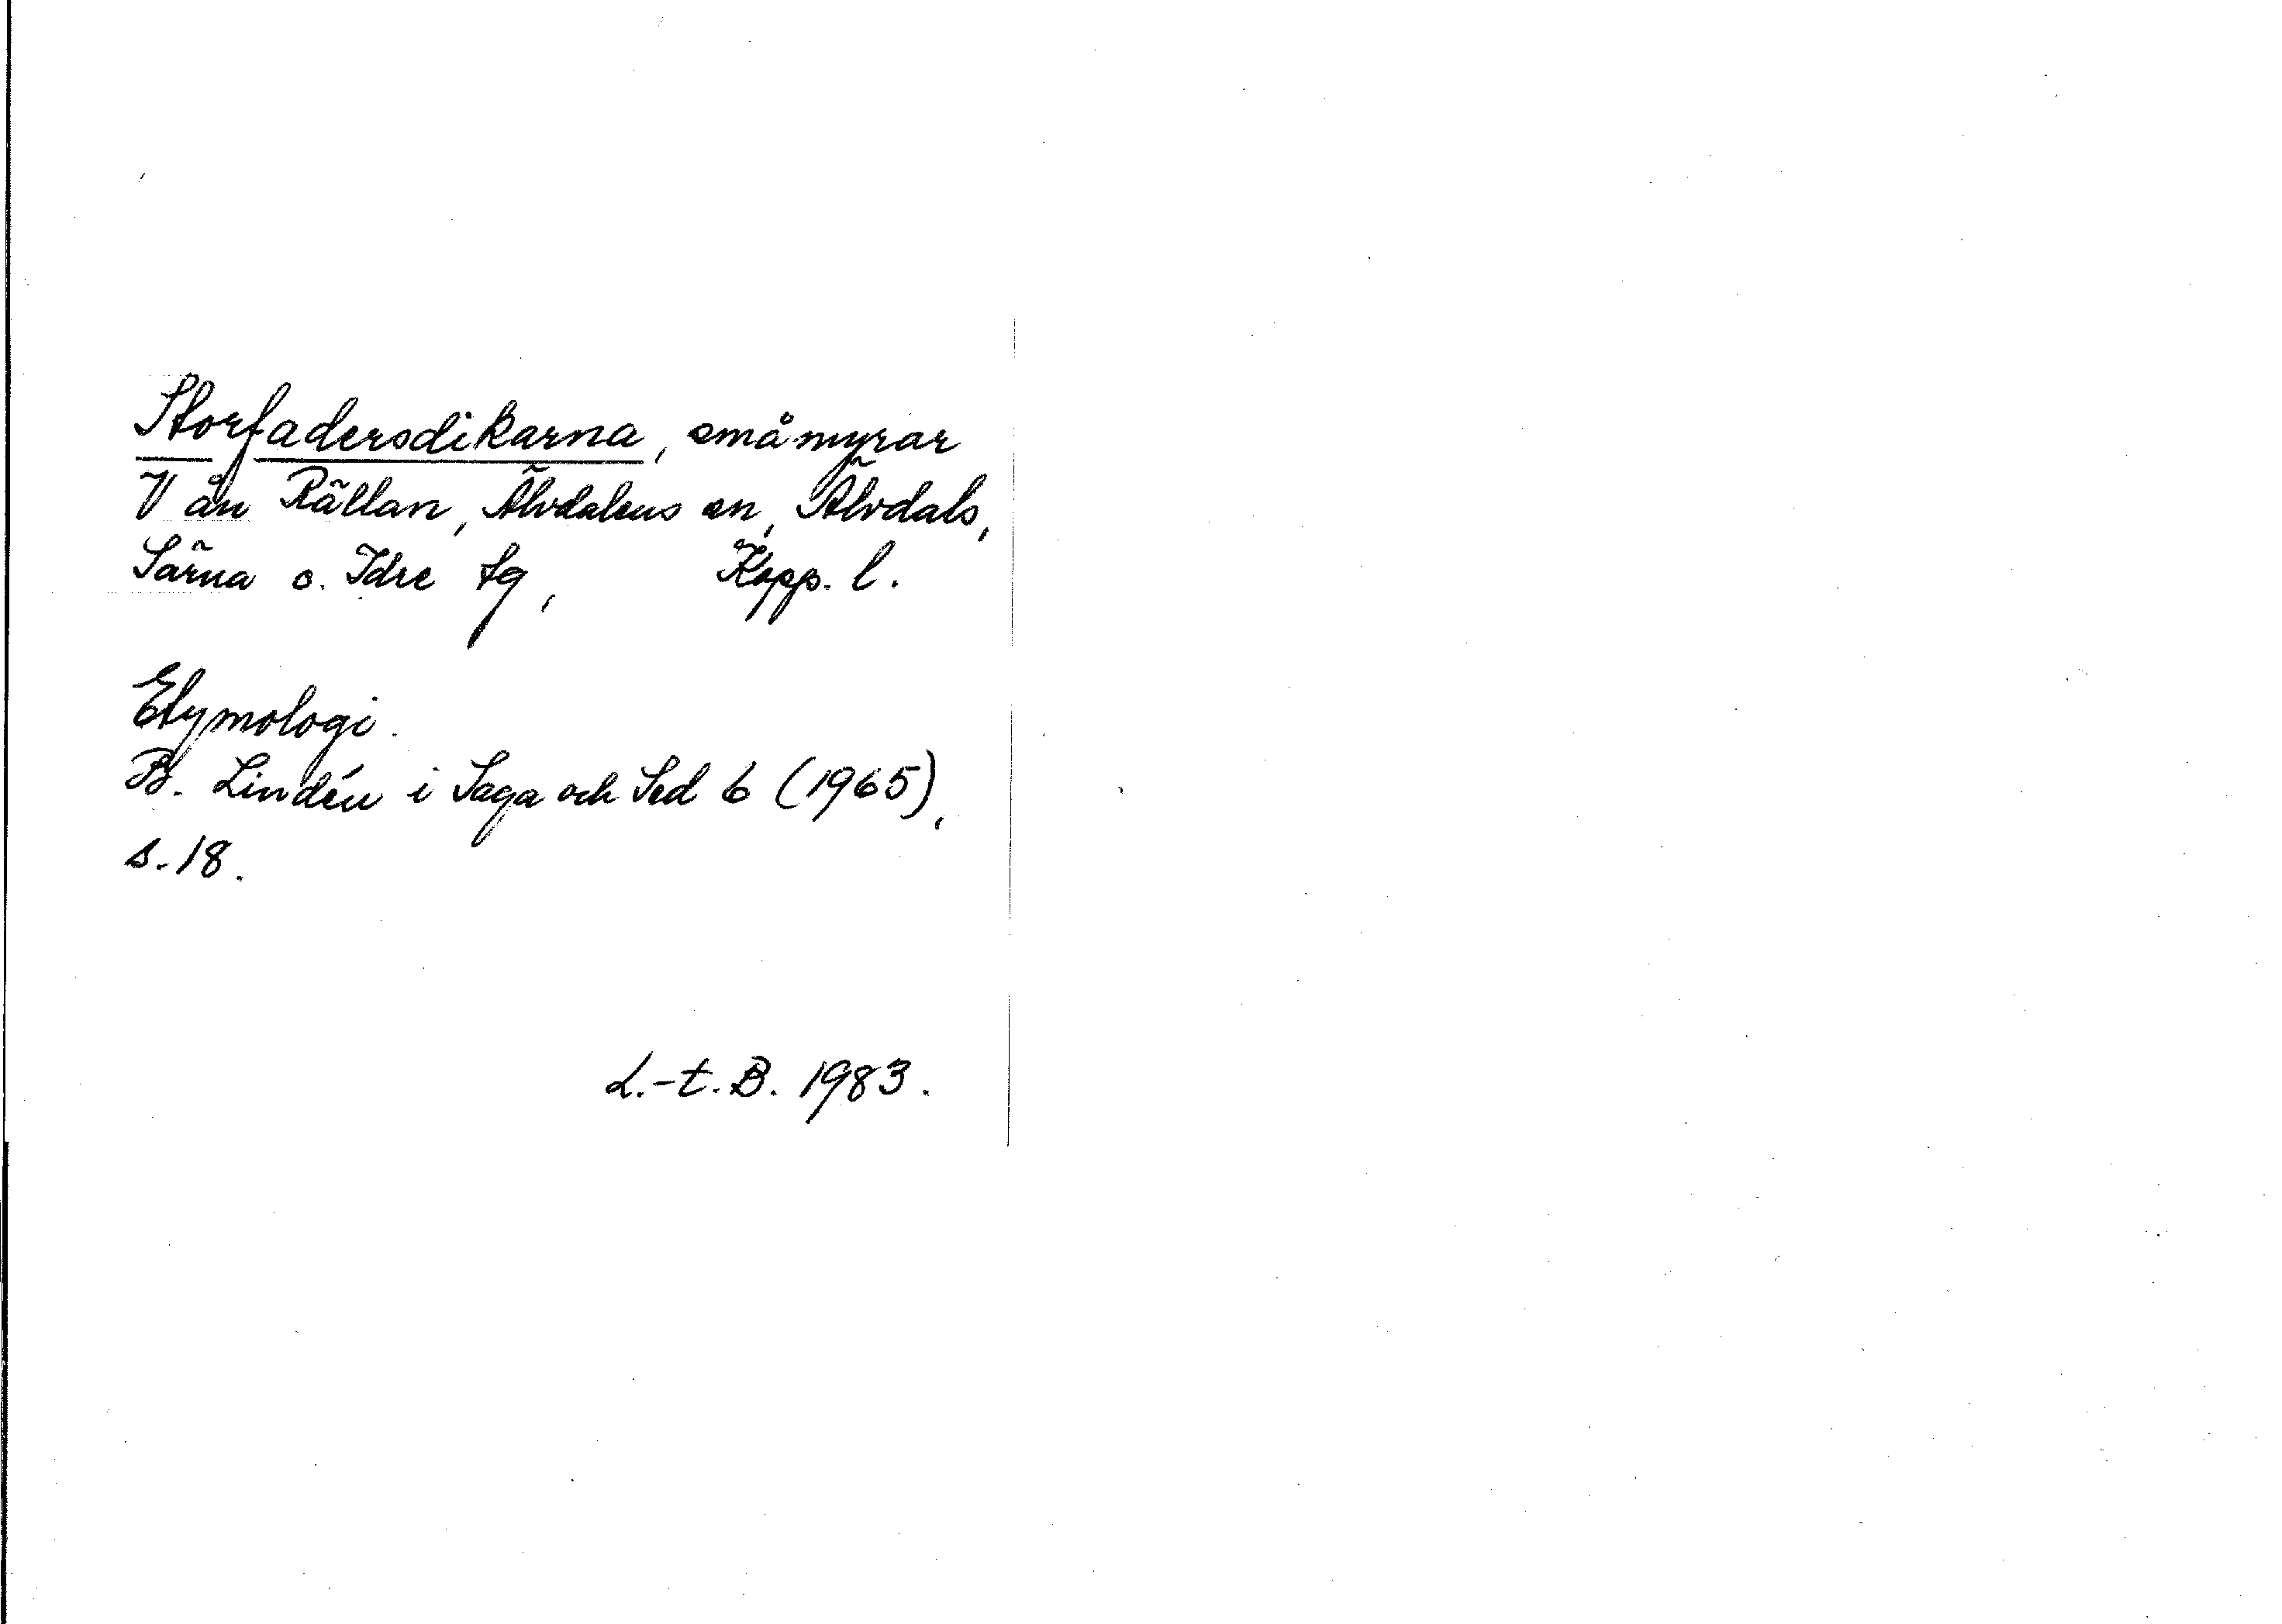 Storfadersdikarna, småmyrar
V ån Rällan, Älvdalens sn, Älvdals,
Särna o. Idre tg, Kopp. l.
Etymologi.
B. Lindén i Saga och Sed 6 (1965),
s. 18.
L.-t. B. 1983.